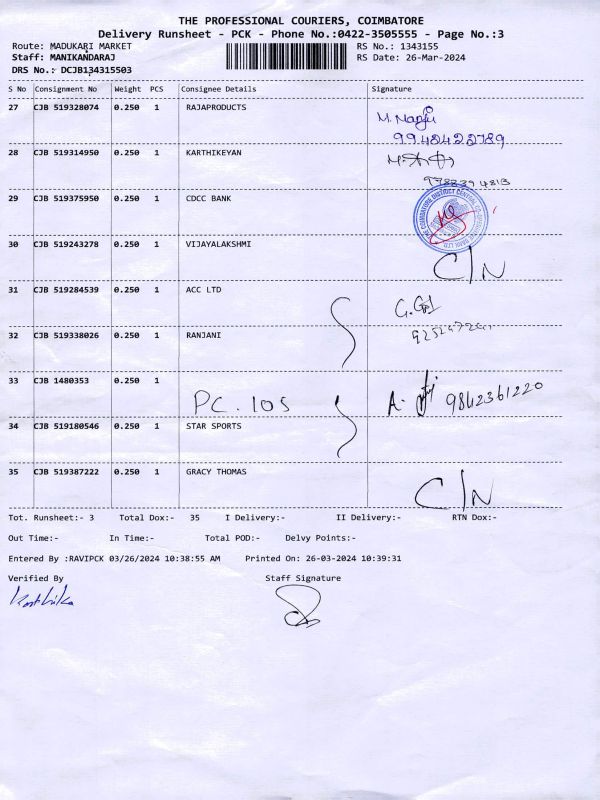 THE PROFESSIONAL COURIERS, COIMBATORE
Delivery Runsheet - PCK - Phone No.:0422-3505555 - Page No.:3
Route: MADUKARI MARKET RS No.: 1343155
Staff: MANIKANDARAJ RS Date: 26-Mar-2024
DRS No.: DCJB134315503
S No Consignment No Weight PCS Consignee Details Signature
27 CJB 519328074 0.250 1 RAJAPRODUCTS
9942422789
28 CJB 519314950 0.250 1 KARTHIKEYAN
29 CJB 519375950 0.250 1 CDCC BANK
30 CJB 519243278 0.250 1 VIJAYALAKSHMI
C/N
31 CJB 519284539 0.250 1 ACC LTD
32 CJB 519338026 0.250 1 RANJANI
33 CJB 1480353 0.250 1
PC.105 A. 9842361220
34 CJB 519180546 0.250 1 STAR SPORTS
35 CJB 519387222 0.250 1 GRACY THOMAS
C/N
Tot. Runsheet:- 3 Total Dox:- 35 I Delivery:- II Delivery:- RTN Dox:-
Out Time:- In Time:- Total POD:- Delvy Points:-
Entered By :RAVIPCK 03/26/2024 10:38:55 AM Printed On: 26-03-2024 10:39:31
Verified By Staff Signature